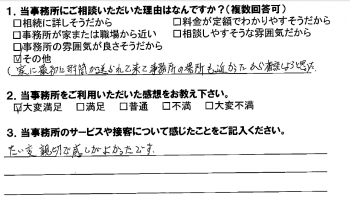 1. 当事務所にご相談いただいた理由はなんですか?(複数回答可)
□相続に詳しそうだから □料金が定額でわかりやすそうだから
□事務所が家または職場から近い □相談しやすそうな雰囲気だから
□事務所の雰囲気が良さそうだから
☑その他
(家に最初に封筒が送られて来て事務所の場所も近かったから
2. 当事務所をご利用いただいた感想をお教え下さい。
☑大変満足 □満足 □普通 □不満 □大変不満
3. 当事務所のサービスや接客について感じたことをご記入ください。
たい変親切で感じがよかったです。